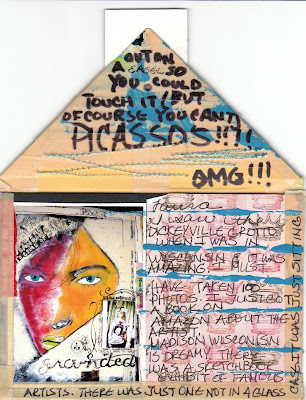 OUT ON
A EASEL SO
YOU COULD
TOUCH IT! (BUT
OF COURSE YOU CAN'T)
PICASSO'S!!!!
OMG!!!
I SAW THE
DICKEYVILLE GROTTO
WHEN I WAS IN
WISCONSIN & IT WAS
AMAZING. I MUST
HAVE TAKEN 100
PHOTOS. I JUST GOT
A BOOK ON
AMAZON ABOUT THEM
MADISON WISCONSIN
IS DREAMY. THERE
WAS A SKETCHBOOK
EXHIBIT OF FAMOUS
ARTISTS. THERE WAS JUST ONE NOT IN A GLASS
CASE. IT WAS JUST SITTING
grounded